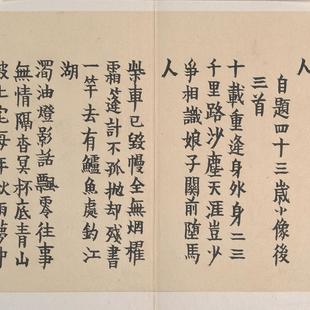 人
自題四十三歲小像後
三首
十載重逢身外身二三
千里路沙塵天涯豈少
爭相識娘子關前墮馬
人
柴車已毀幔全無烟櫂
霜篷計不孤拋却殘書
一竿去有鱸魚處釣江
湖
濁油燈影話飄零往事
無情隔杳冥杯底青山
土定每年秋雨夢